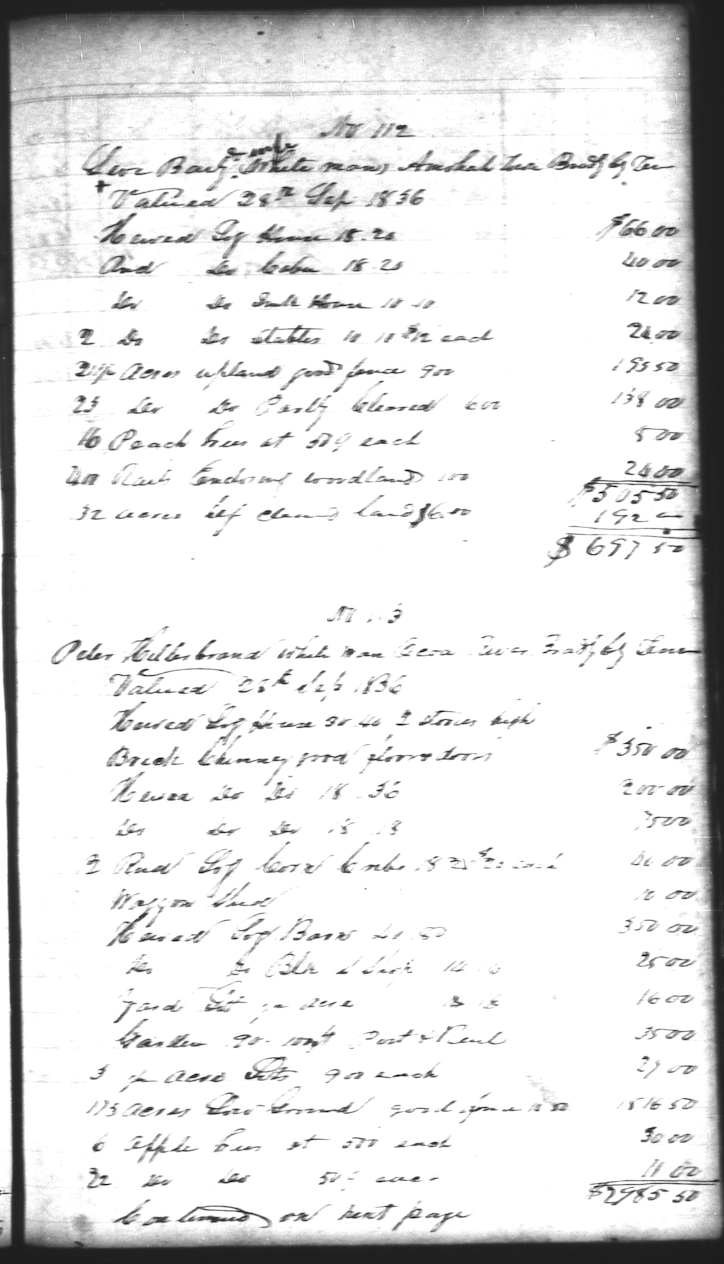 No 112
a wife
White man,
Valued 28th Sep 1836
Hewed Log House 18.20 $66 00
Rnd Do Cabin 18.20 40 00
Do Do House 10 10 12 00
2 Do Do Stables 10 10 $12 each 24 00
Acres upland good fence 900 193 50
23 Do Do Partly Cleared 600 138 00
16 Peach trees at 50¢ each 8 00
400 Rails Enclosing woodland 100 24 00
$505 50
32 acres land $6.00 192
$697 50
No 113
Peter Hildebrand White man River
Valued 28th Sep 1836
Hewed Log House 30 40 2 stories high
Brick Chimney good floors doors $350 00
Hewed Do Do 18 36 200 00
Do Do Do 18 18 75 00
2 Rnd Log Corn Cribs 18 each 40 00
Waggon Shed 10 00
Hewed Log Barn 350 00
Do Do Blk S Shop 25 00
Yard Lot Acre 16 00
Garden Post & Rail 35 00
3 Acre Lots 900 each 27 00
Acres Low Ground good fence 1816 50
6 Apple trees at 500 each 30 00
22 Do Do 50¢ each 11 00
$2985 50
Continued on next page